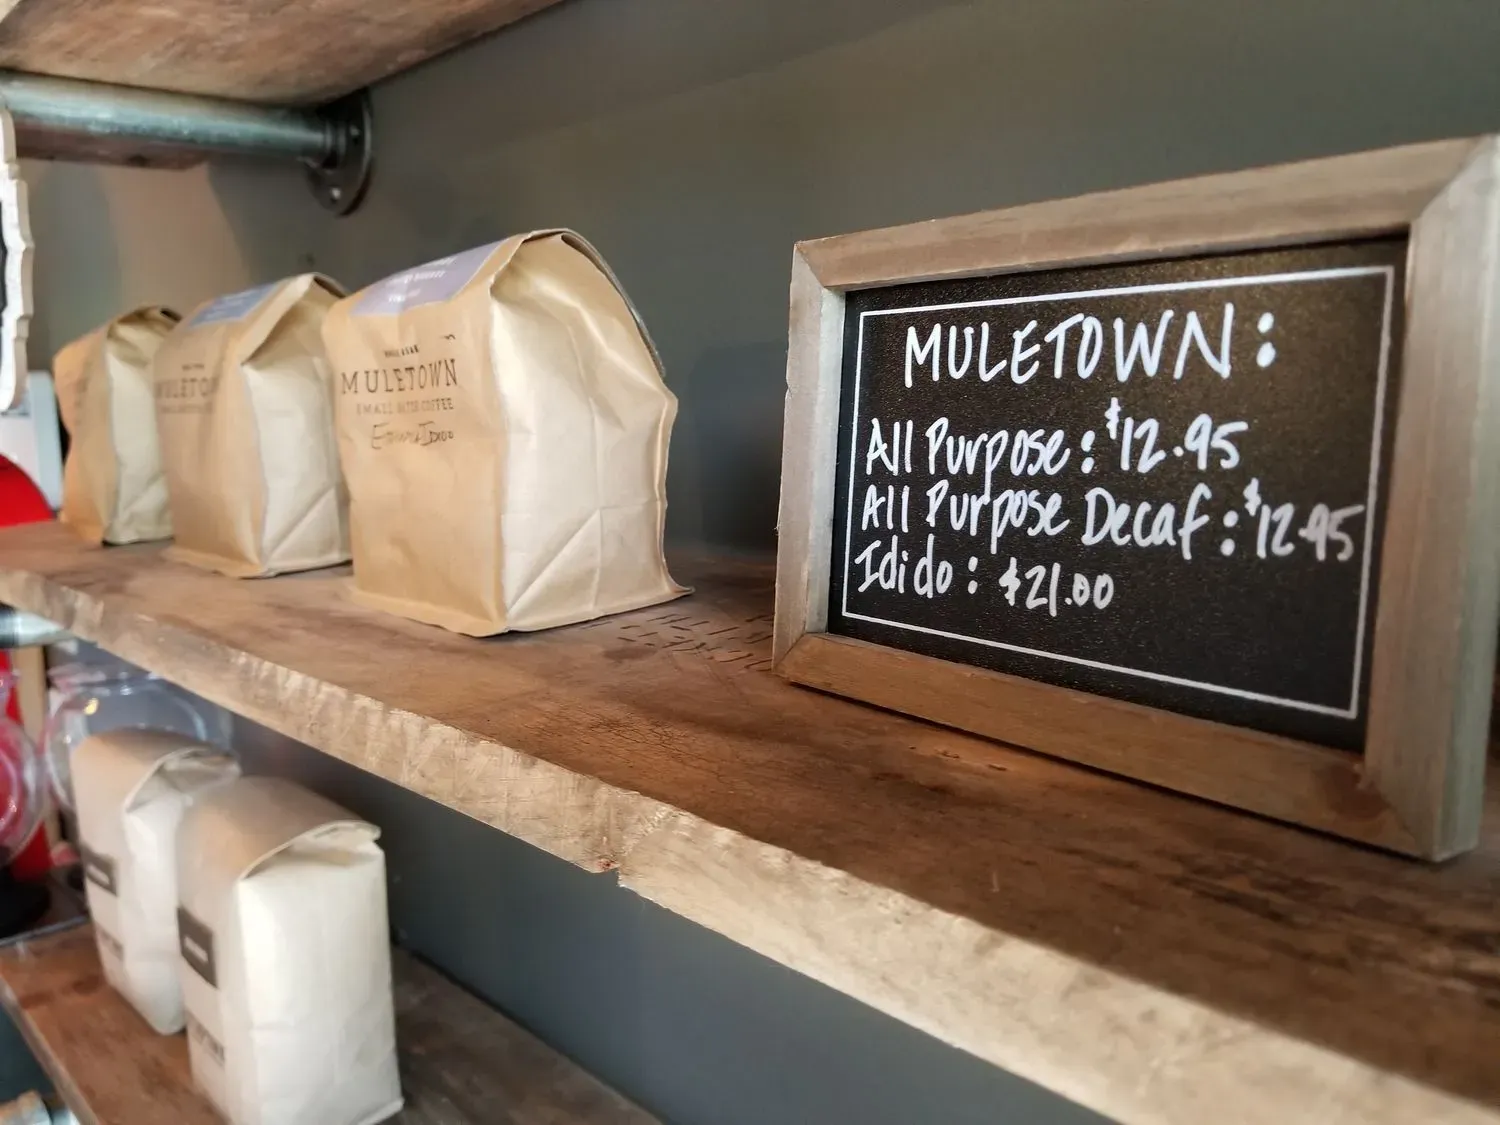 MULETOWN
SMALL BATCH COFFEE
MULETOWN
MULETOWN:
All Purpose: $12.95
All Purpose Decaf: $12.95
Idido: $21.00